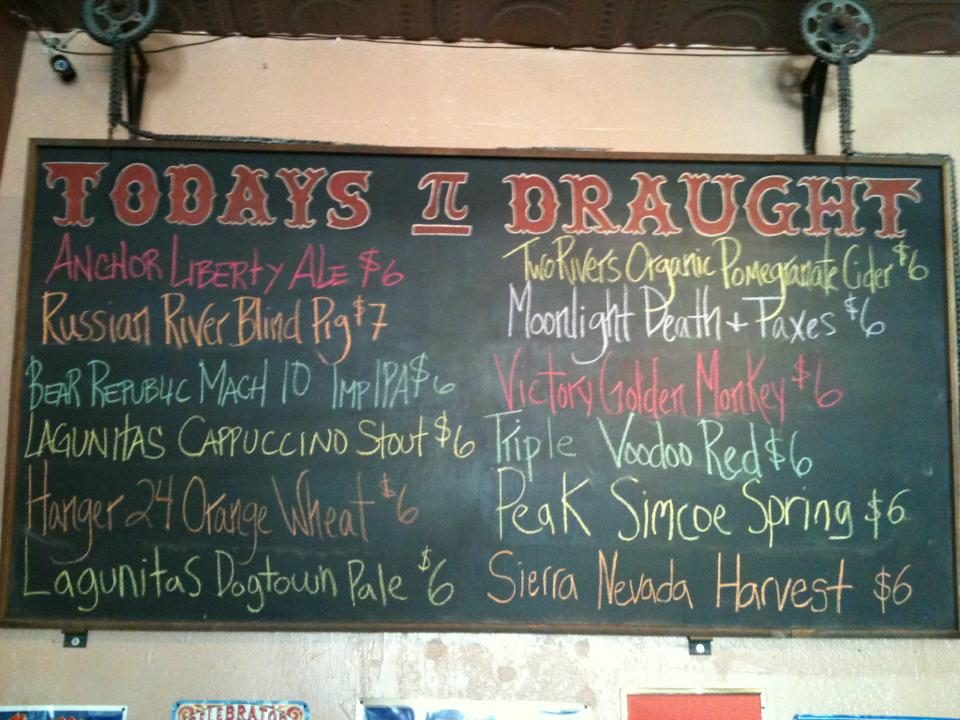 TODAYS π DRAUGHT
ANCHOR LIBERTY ALE $6
Russian River Blind Pig $7
BEAR REPUBLIC MACH 10 IMP IPA $6
LAGUNITAS CAPPUCCINO Stout $6
Hanger 24 Orange Wheat $6
Lagunitas Dogtown Pale $6
Two Rivers Organic Pomegranate Cider $6
Moonlight Death + Taxes $6
Victory Golden Monkey $6
Triple Voodoo Red $6
Peak Simcoe Spring $6
Sierra Nevada Harvest $6